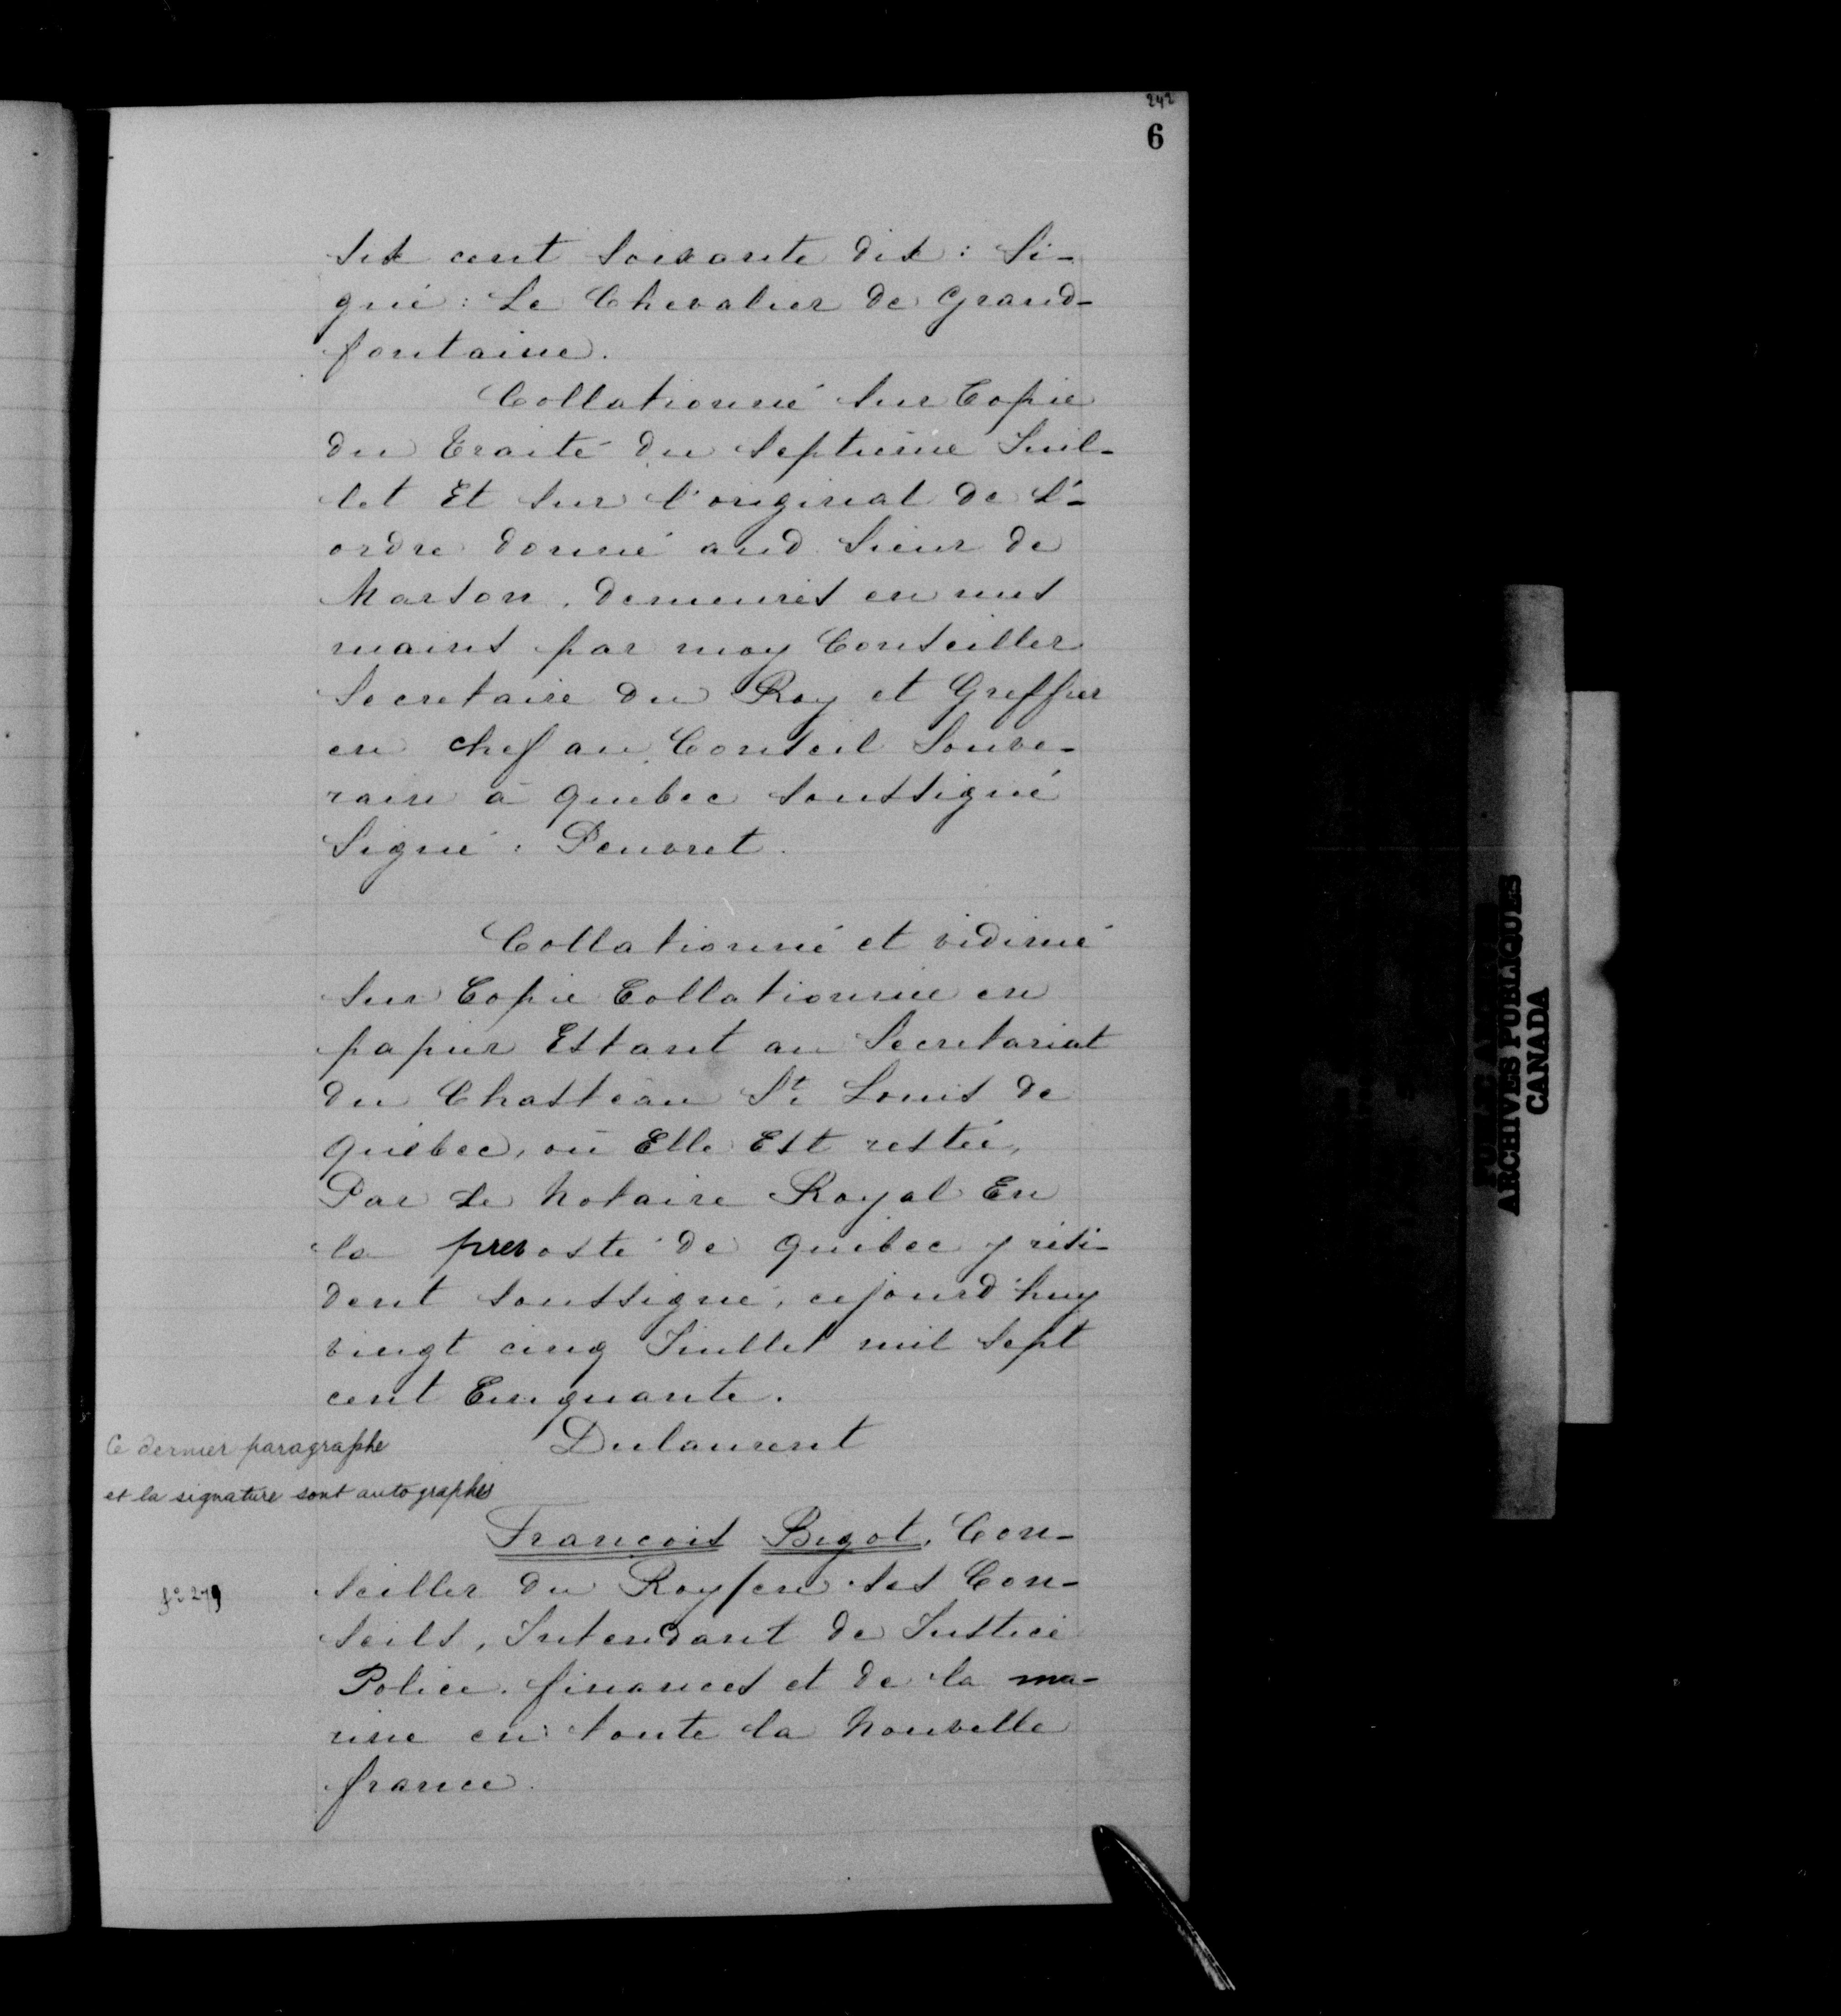 242
6
six cent soixante dix : Si-
gné : Le Chevalier de Grand-
fontaine.
Collationné sur Copie
du Traité du septieme Juil-
let Et sur l'original de L'-
ordre donné aud. Sieur de
Marson, demeurés en mes
mains par moy Conseiller
Secretaire du Roy et Greffier
en chef au Conseil Souve-
rain à Quebec soussigné
Signé : Peuvret.
Collationné et vidimé
sur Copie Collationnée en
papier Estant au Secretariat
du Chasteau St Louis de
Québec, où Elle Est restée,
Par Le Notaire Royal En
la prevosté de Québec y rési-
dent soussigné, cejourd'huy
vingt cinq Juillet mil sept
cent Cinquante.
Dulaurent
Ce dernier paragraphe
et la signature sont autographes
François Bigot, Con-
fo 279
seiller du Roy en ses Con-
seils, Intendant de Justice
Police, finances et de la ma-
rine en toute la Nouvelle
france.
ARCHIVES PUBLIQUES
CANADA